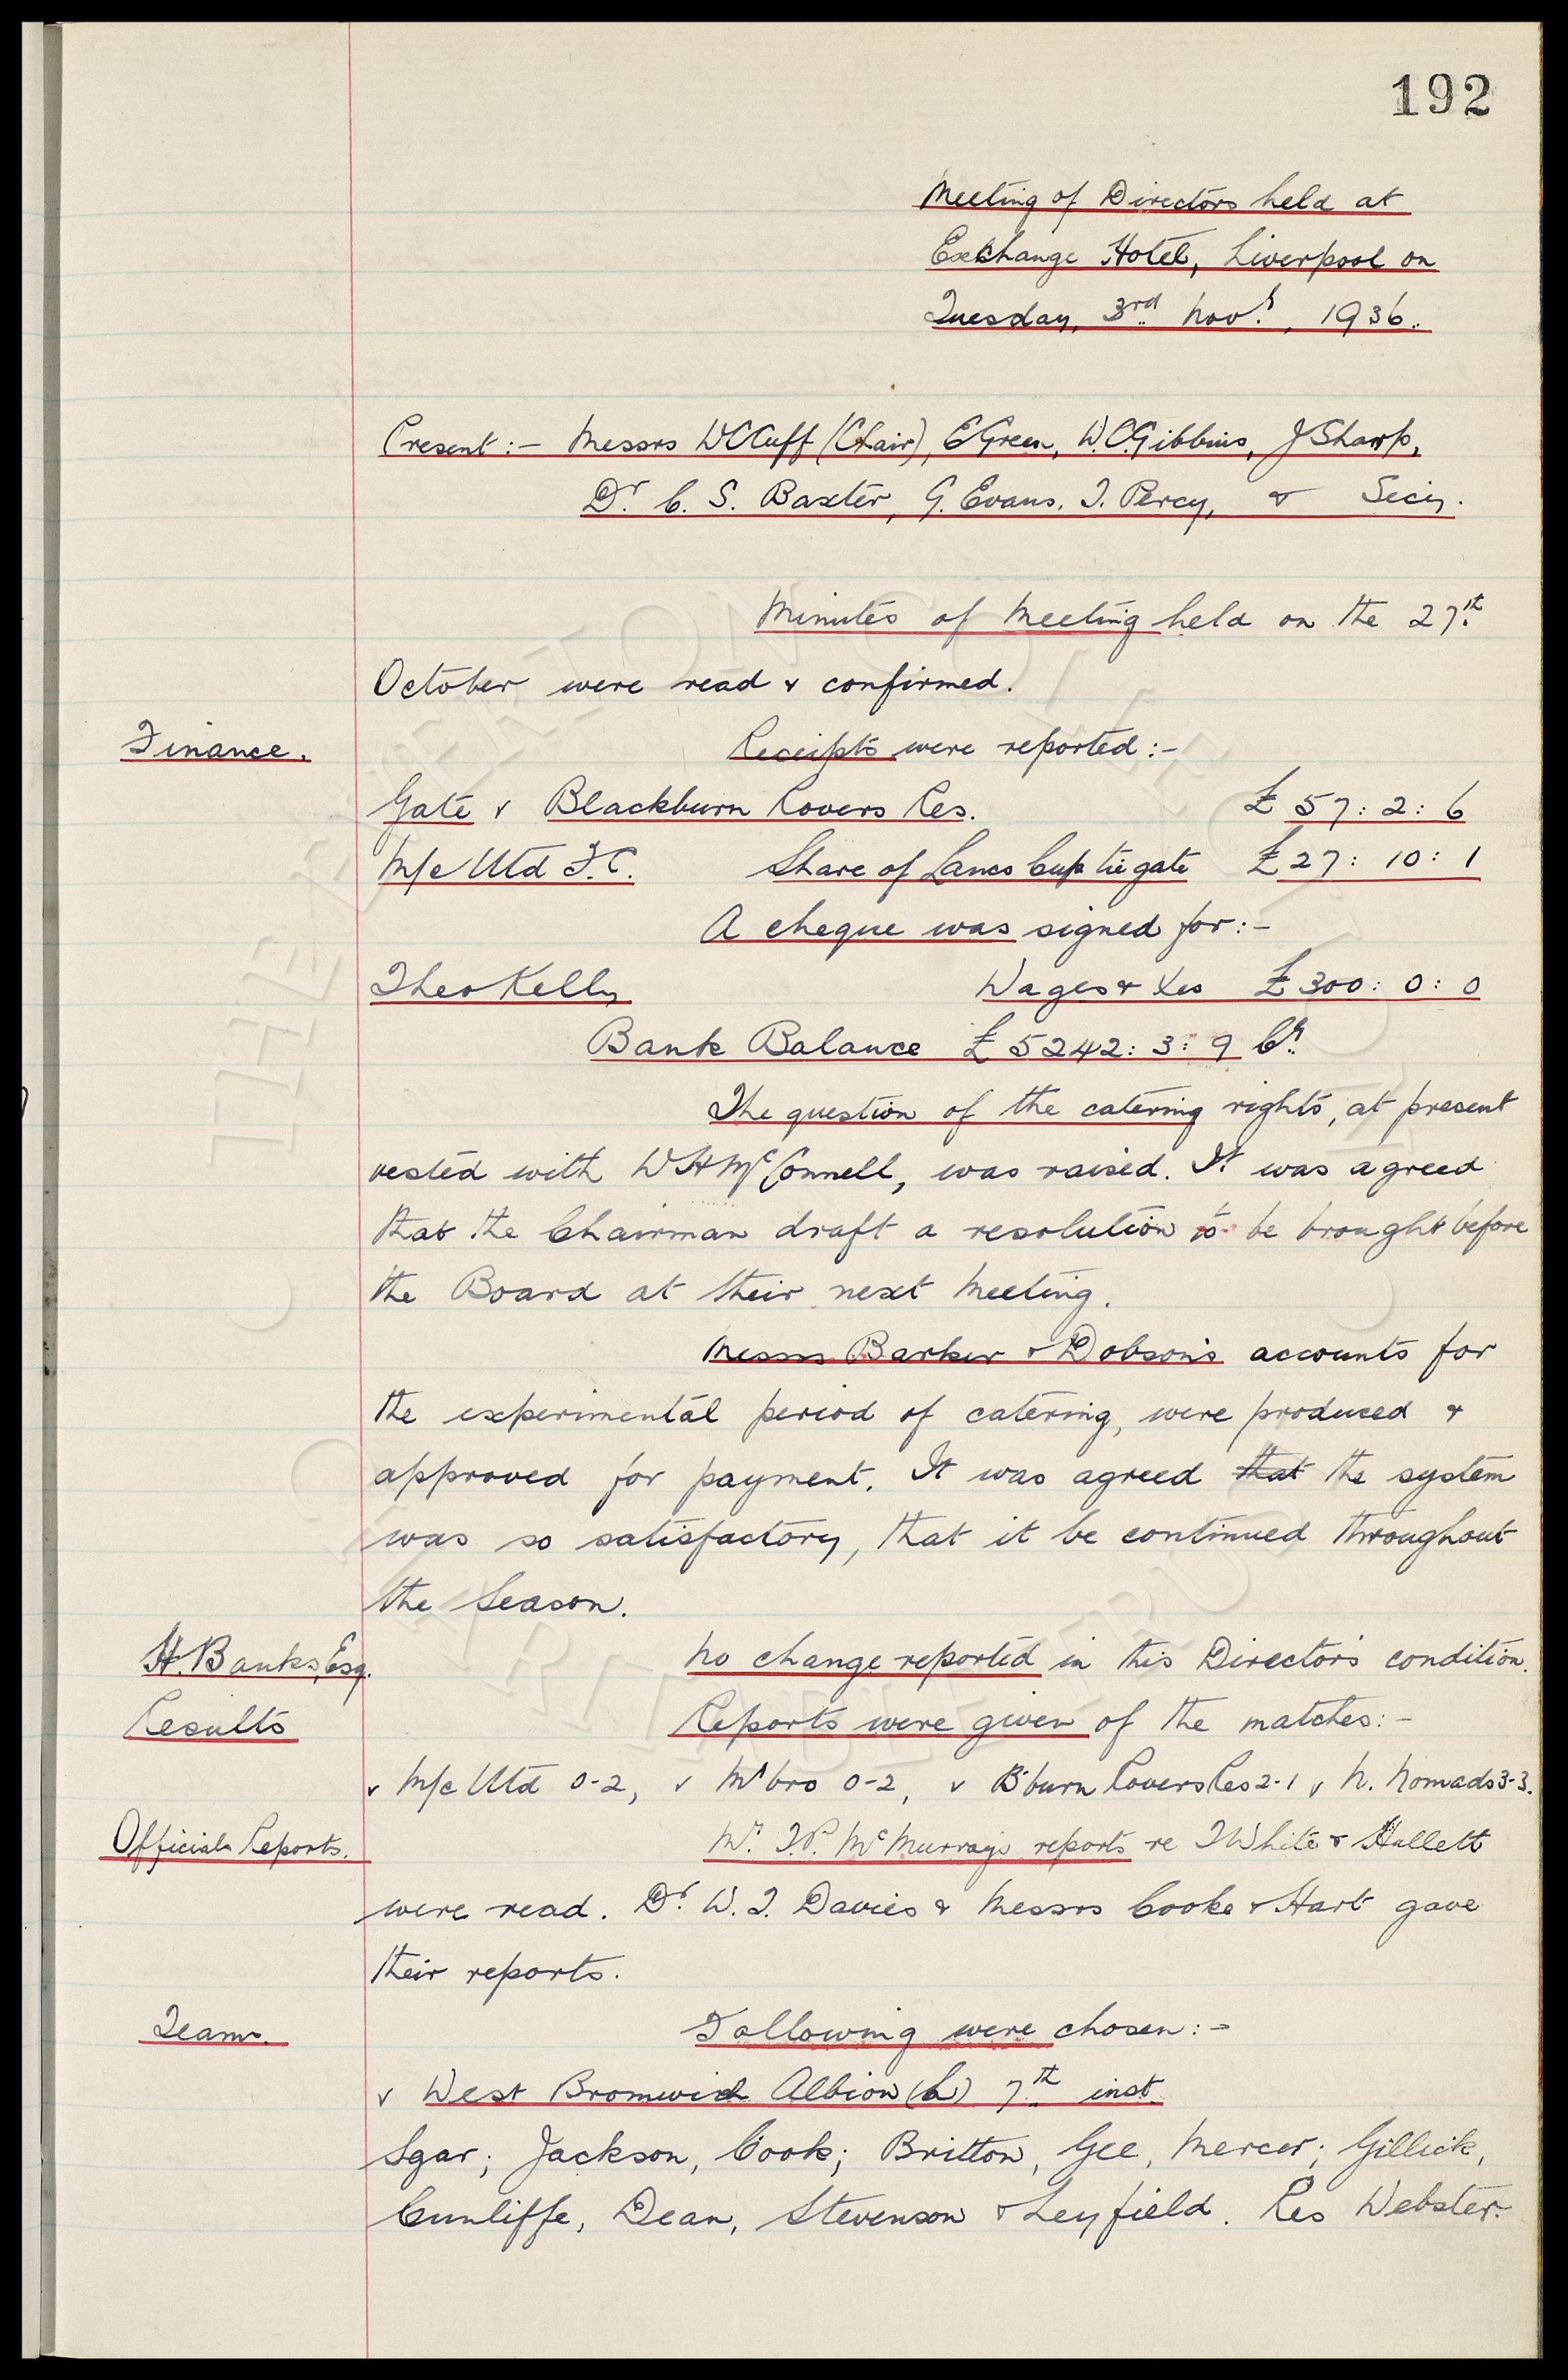 192
Meeting of Directors held at
Exchange Hotel, Liverpool on
Tuesday, 3rd Novr, 1936.
Present:- Messrs W C Cuff (Chair), E Green, W.C. Gibbins, J Sharp,
Dr. C. S. Baxter, G. Evans, T. Percy, & Secy.
Minutes of Meeting held on the 27th
October were read & confirmed.
Finance. Receipts were reported:-
Gate v Blackburn Rovers Res. £57:2:6
M/c Utd F.C. Share of Lancs Cup tie gate £27:10:1
A cheque was signed for:-
Theo Kelly Wages & Xes £300:0:0
Bank Balance £5242:3:9 Cr.
The question of the catering rights, at present
vested with W H McConnell, was raised. It was agreed
that the Chairman draft a resolution to be brought before
the Board at their next Meeting.
Messrs Barker & Dobson's accounts for
the experimental period of catering, were produced &
approved for payment. It was agreed that the system
was so satisfactory, that it be continued throughout
the Season.
H. Banks, Esq. No change reported in this Director's condition.
Results Reports were given of the matches:-
v M/c Utd 0-2, v M'bro 0-2, v B'burn Rovers Res 2-1 v N. Nomads 3-3.
Officials Reports. Mr. T.P. McMurray's reports re T White & Hullett
were read. Dr. W. T. Davies & Messrs Cooke & Hart gave
their reports.
Teams. Following were chosen:-
v West Bromwich Albion (h) 7th inst.
Sgar; Jackson, Cook; Britton, Gee, Mercer; Gillick,
Cunliffe, Dean, Stevenson & Leyfield. Res Webster.